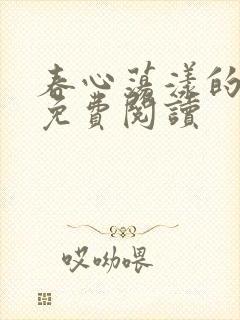 春心荡漾的
免費閱讀
哎呦喂